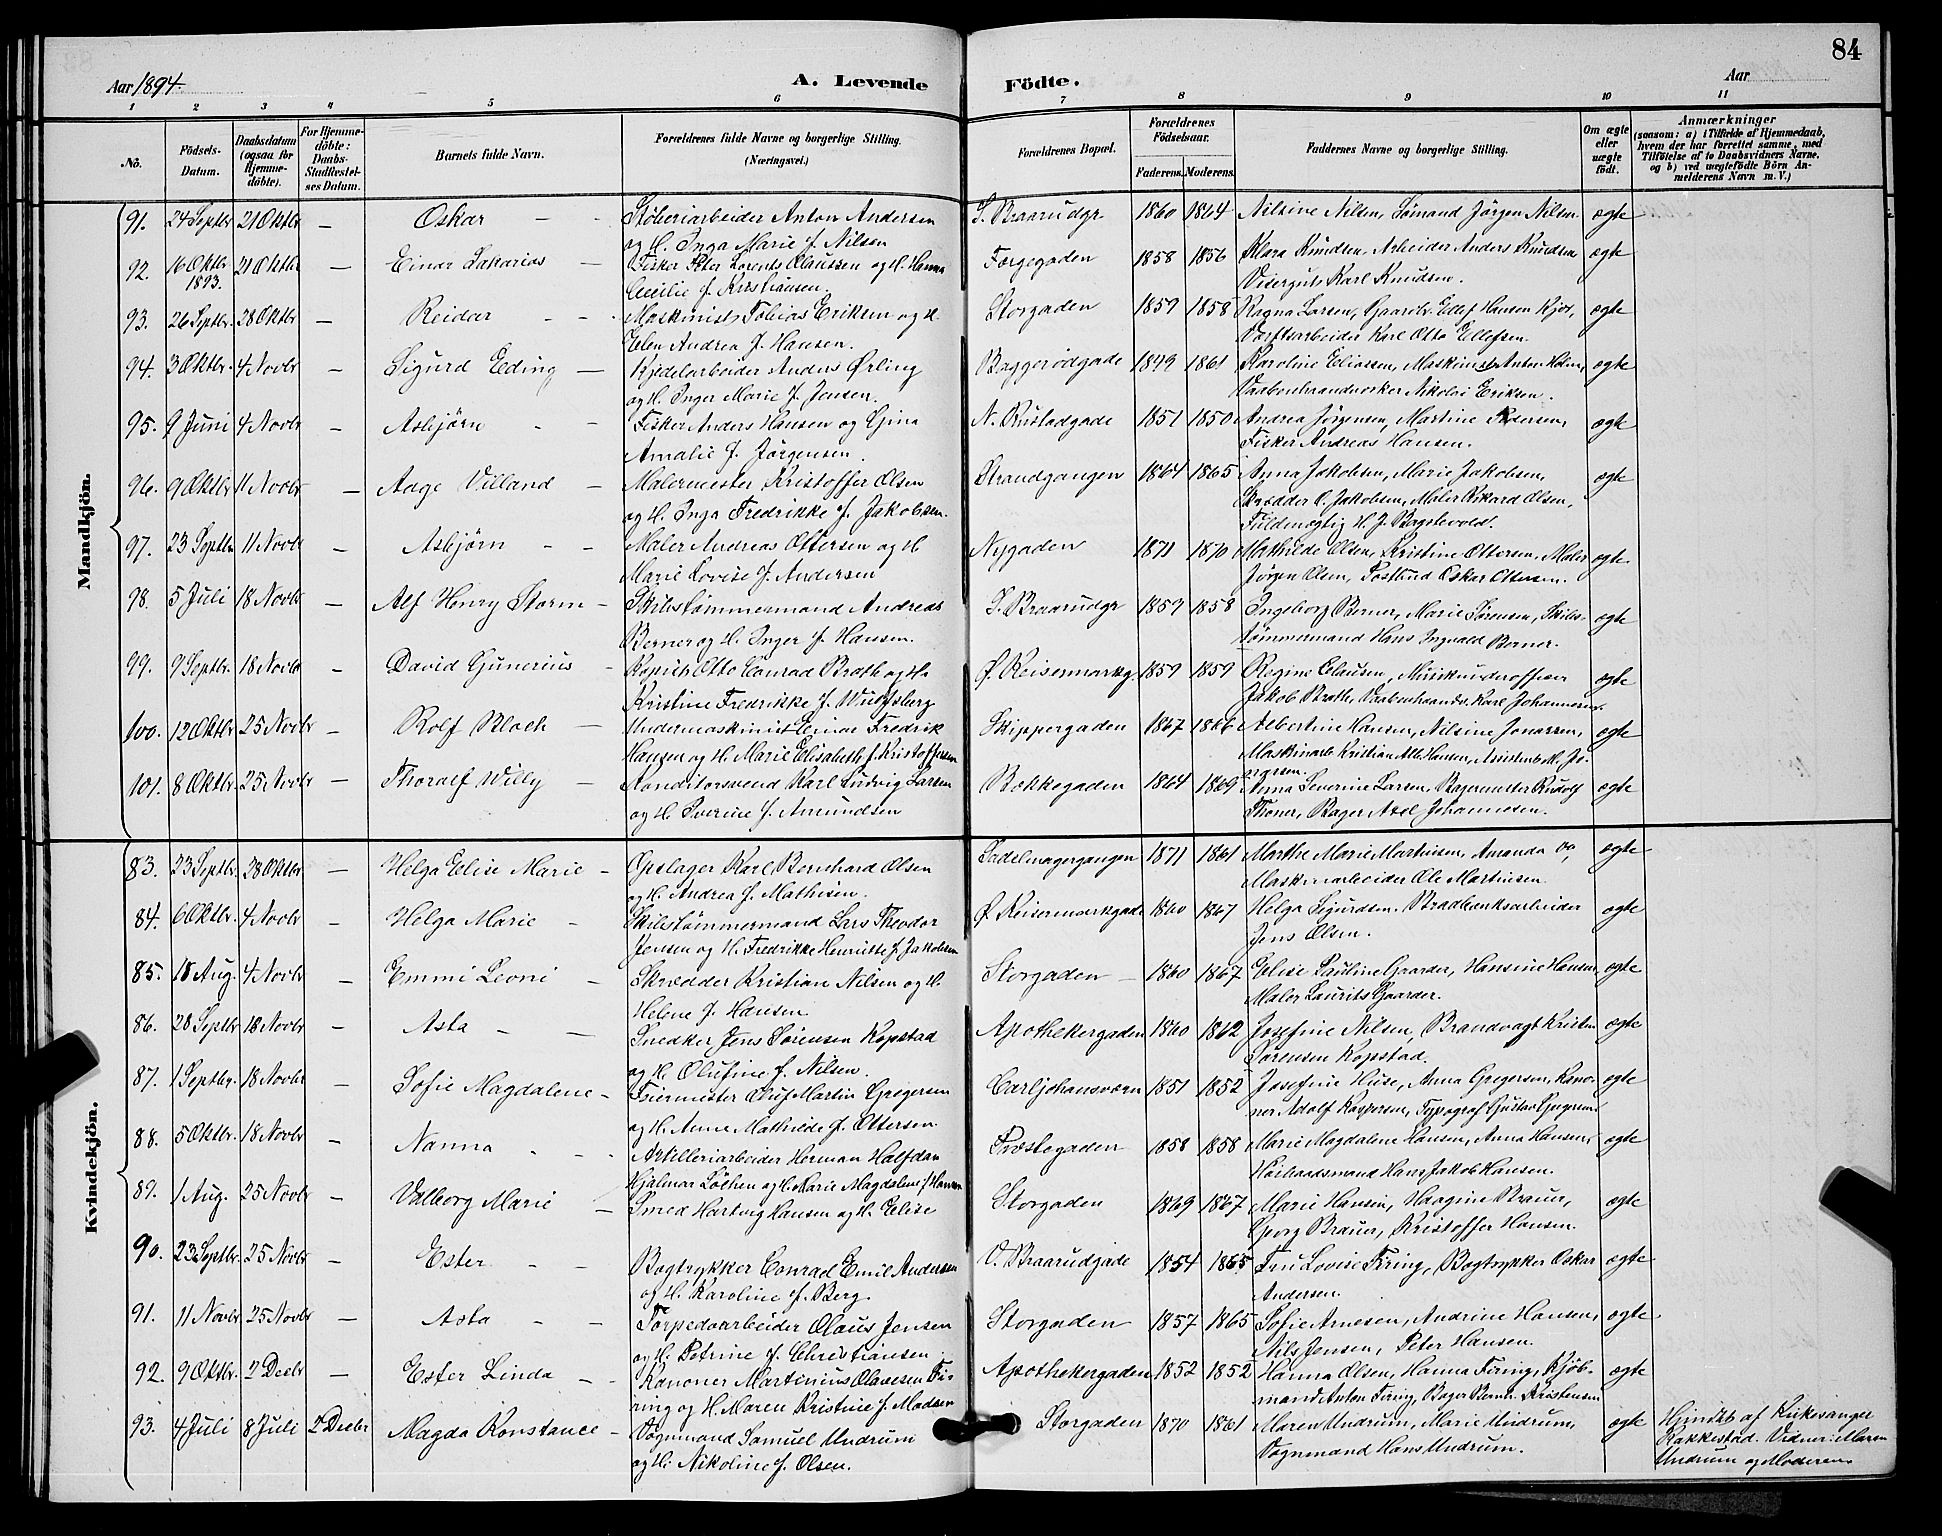 84
Aar 1894. A. Levende Födte. Aar
1 2 3 4 5 6 7 8 9 10 11
No. Födsels-Datum. Daabsdatum (ogsaa for Hjemme-döbte). For Hjemme-döbte: Daabs-Stadfæstel-ses Datum. Barnets fulde Navn. Forældrenes fulde Navne og borgerlige Stilling. (Næringsvei.) Forældrenes Bopæl. Forældrenes Födselsaar. Faderens. Moderens. Faddernes Navne og borgerlige Stilling. Om ægte eller uægte födt. Anmærkninger (saasom: a) i Tilfælde af Hjemmedaab, hvem der har forrettet samme, med Tilföielse af to Daabsvidners Navne. og b) ved uægtefödte Börn An-melderens Navn m. V.)
Mandkjön.
91. 24 Septbr 21 Oktbr — Oskar — - Støberiarbeider Anton Andersen S. Braarudgr 1860 1864 Nilsine Nilsen, Sømand Jørgen Nilsen ægte
og H. Inga Marie f. Nilsen
92. 16 Oktbr 1893. 21 Oktbr — Einar Sakarias — Fisker Peter Lorents Claussen og H. Hanna Færgegaden 1858 1856 Klara Knudsen, Arbeider Anders Knudsen ægte
Cecilie f. Kristiansen. Visergut Karl Knudsen.
93. 26 Septbr. 28 Oktbr — Reidar - - Maskinist Tobias Eriksen og H. Storgaden 1859 1858 Ragna Larsen, Gaardbr. Ellef Hansen Kjær, ægte
Elen Andrea f. Hansen. Værftsarbeider Karl Otto Ellefsen.
94. 3 Oktbr. 4 Novbr — Sigurd Eding — Kjedelarbeider Anders Ørling Baggerødgade 1849 1861 Karoline Eliassen, Maskinist Anton Holm, ægte
og H. Inger Marie f. Jensen. Vaabenhaandverker Nikolai Eriksen.
95. 9 Juni 4 Novbr — Asbjørn - - Fisker Anders Hansen og Gina N. Rustadgade 1851 1850 Andrea Jørgensen, Martine Pedersen, ægte
Amalie f. Jørgensen. Fisker Andreas Hansen.
96. 9 Oktbr 11 Novbr — Aage Villand — Malermester Kristoffer Olsen Strandgangen 1864 1865 Anna Jakobsen, Marie Jakobsen, ægte
og H. Inga Fredrikke f. Jakobsen. Skrædder O. Jakobsen, Maler Rikard Olsen,
Fuldmægtig H. J. Bagstevold.
97. 23 Septbr 11 Novbr — Asbjørn - - Maler Andreas Ottersen og H Nygaden 1871 1870 Mathilde Olsen, Kristine Ottersen, Maler ægte
Marie Lovise f. Andersen Jørgen Olsen, Postbud Oskar Ottersen.
98. 5 Juli 18 Novbr — Alf Henry Storm — Skibstømmermand Andreas S. Braarudgr 1859 1858 Ingeborg Berner, Marie Sørensen, Skibs- ægte
Berner og H. Inger f. Hansen. tømmermand Hans Ingvald Berner.
99. 9 Septbr. 18 Novbr — David Gunerius - Kopist Otto Conrad Brath og H. Ø. Keisermarkg. 1859 1859 Regine Clausen, Musikunderofficer ægte
Kristine Fredrikke f. Wulfsberg Jakob Brath, Vaabenhaandv. Karl Johannesen.
100. 12 Oktbr. 25 Novbr — Rolf Bloch — Undermaskinist Einar Fredrik Skippergaden 1867 1866 Albertine Hansen, Nilsine Jonassen, ægte
Hansen og H. Marie Elisabeth f. Kristoffersen Maskinarb. Kristian Alb. Hansen, Assistent M. Jo-
nassen.
101. 8 Oktbr. 25 Novbr — Thoralf Willy — Konditorsvend Karl Ludvig Larsen Bakkegaden 1864 1869 Anna Severine Larsen, Bagermester Rudolf ægte
og H. Sverine f. Amundsen Thoner, Bager Axel Johannesen.
Kvindekjön.
83. 23 Septbr. 28 Oktbr. — Helga Elise Marie — Opslager Karl Bernhard Olsen Sadelmagergangen 1871 1861 Marthe Marie Martinsen, Amanda do, ægte
og H. Andrea f. Mathisen. Maskinarbeider Ole Martinsen.
84. 6 Oktbr. 4 Novbr — Helga Marie - Skibstømmermand Lars Theodor Ø. Keisermarkgade 1860 1867 Helga Sigurdsen, Bradbænksarbeider ægte
Jensen og H. Fredrikke Henriette f. Jakobsen Jens Olsen.
85. 18 Aug. 4 Novbr — Emmi Leoni — Skrædder Kristian Nilsen og H. Storgaden — 1860 1867 Elise Pauline Gaarder, Hansine Hansen ægte
Helene f. Hansen Maler Laurits Gaarder.
86. 28 Septbr 18 Novbr — Asta - — Snedker Jens Sørensen Kopstad Apothekergaden 1860 1862 Josefine Nilsen, Brandvagt Kristen ægte
og H. Olufine f. Nilsen. Sørensen Kopstad.
87. 1 Septbr. 18 Novbr — Sofie Magdalene — Feiermester Oluf Martin Gregersen Carljohansværn 1851 1852 Josefine Huse, Anna Gregersen, Kano- ægte
og H. Anne Mathilde f. Ottersen. ner Adolf Kaspersen, Typograf Gustav Gregersen
88. 5 Oktbr. 18 Novbr — Nanna - - Artilleriarbeider Herman Halfdan Præstegaden 1858 1858 Marie Magdalene Hansen, Anna Hansen, ægte
Hjalmar Løthen og H. Marie Magdalene f. Hansen Høibaadsmand Hans Jakob Hansen.
89. 1 Aug. 25 Novbr — Valborg Marie — Smed Hartvig Hansen og H. Elise Storgaden 1869 1867 Marie Hansen, Haagine Brauer, ægte
Georg Brauer, Kristoffer Hansen.
90. 23 Septbr. 25 Novbr — Ester - - Bogtrykker Conrad Emil Andersen V. Braarudgade 1854 1865. Fru Lovise Firing, Bogtrykker Oskar ægte
og H. Karoline f. Berg. Andersen.
91. 11 Novbr 25 Novbr — Asta - - Torpedoarbeider Olaus Jensen Storgaden 1857 1865 Sofie Arnesen, Andrine Hansen, ægte
og H. Petrine f. Christiansen. Nils Jensen, Peter Hansen.
92. 9 Oktbr. 2 Decbr — Ester Linda - - Kanoner Martinius Olavesen Fi- Apothekergaden 1852 1852 Hanna Olsen, Hanna Firing, Kjøb- ægte
ring og H. Maren Kristine f. Madsen mand Anton Firing, Bager Bernh. Kristensen
93. 4 Juli 8 Juli 2 Decbr Magda Konstance - Vognmand Samuel Undrum Storgaden 1870 1861 Maren Undrum, Marie Undrum, ægte Hjmdbt af Kirkesanger
og H. Nikoline f. Olsen. Vognmand Hans Undrum. Rakkestad. Vidner: Maren
Undrum og Moderen